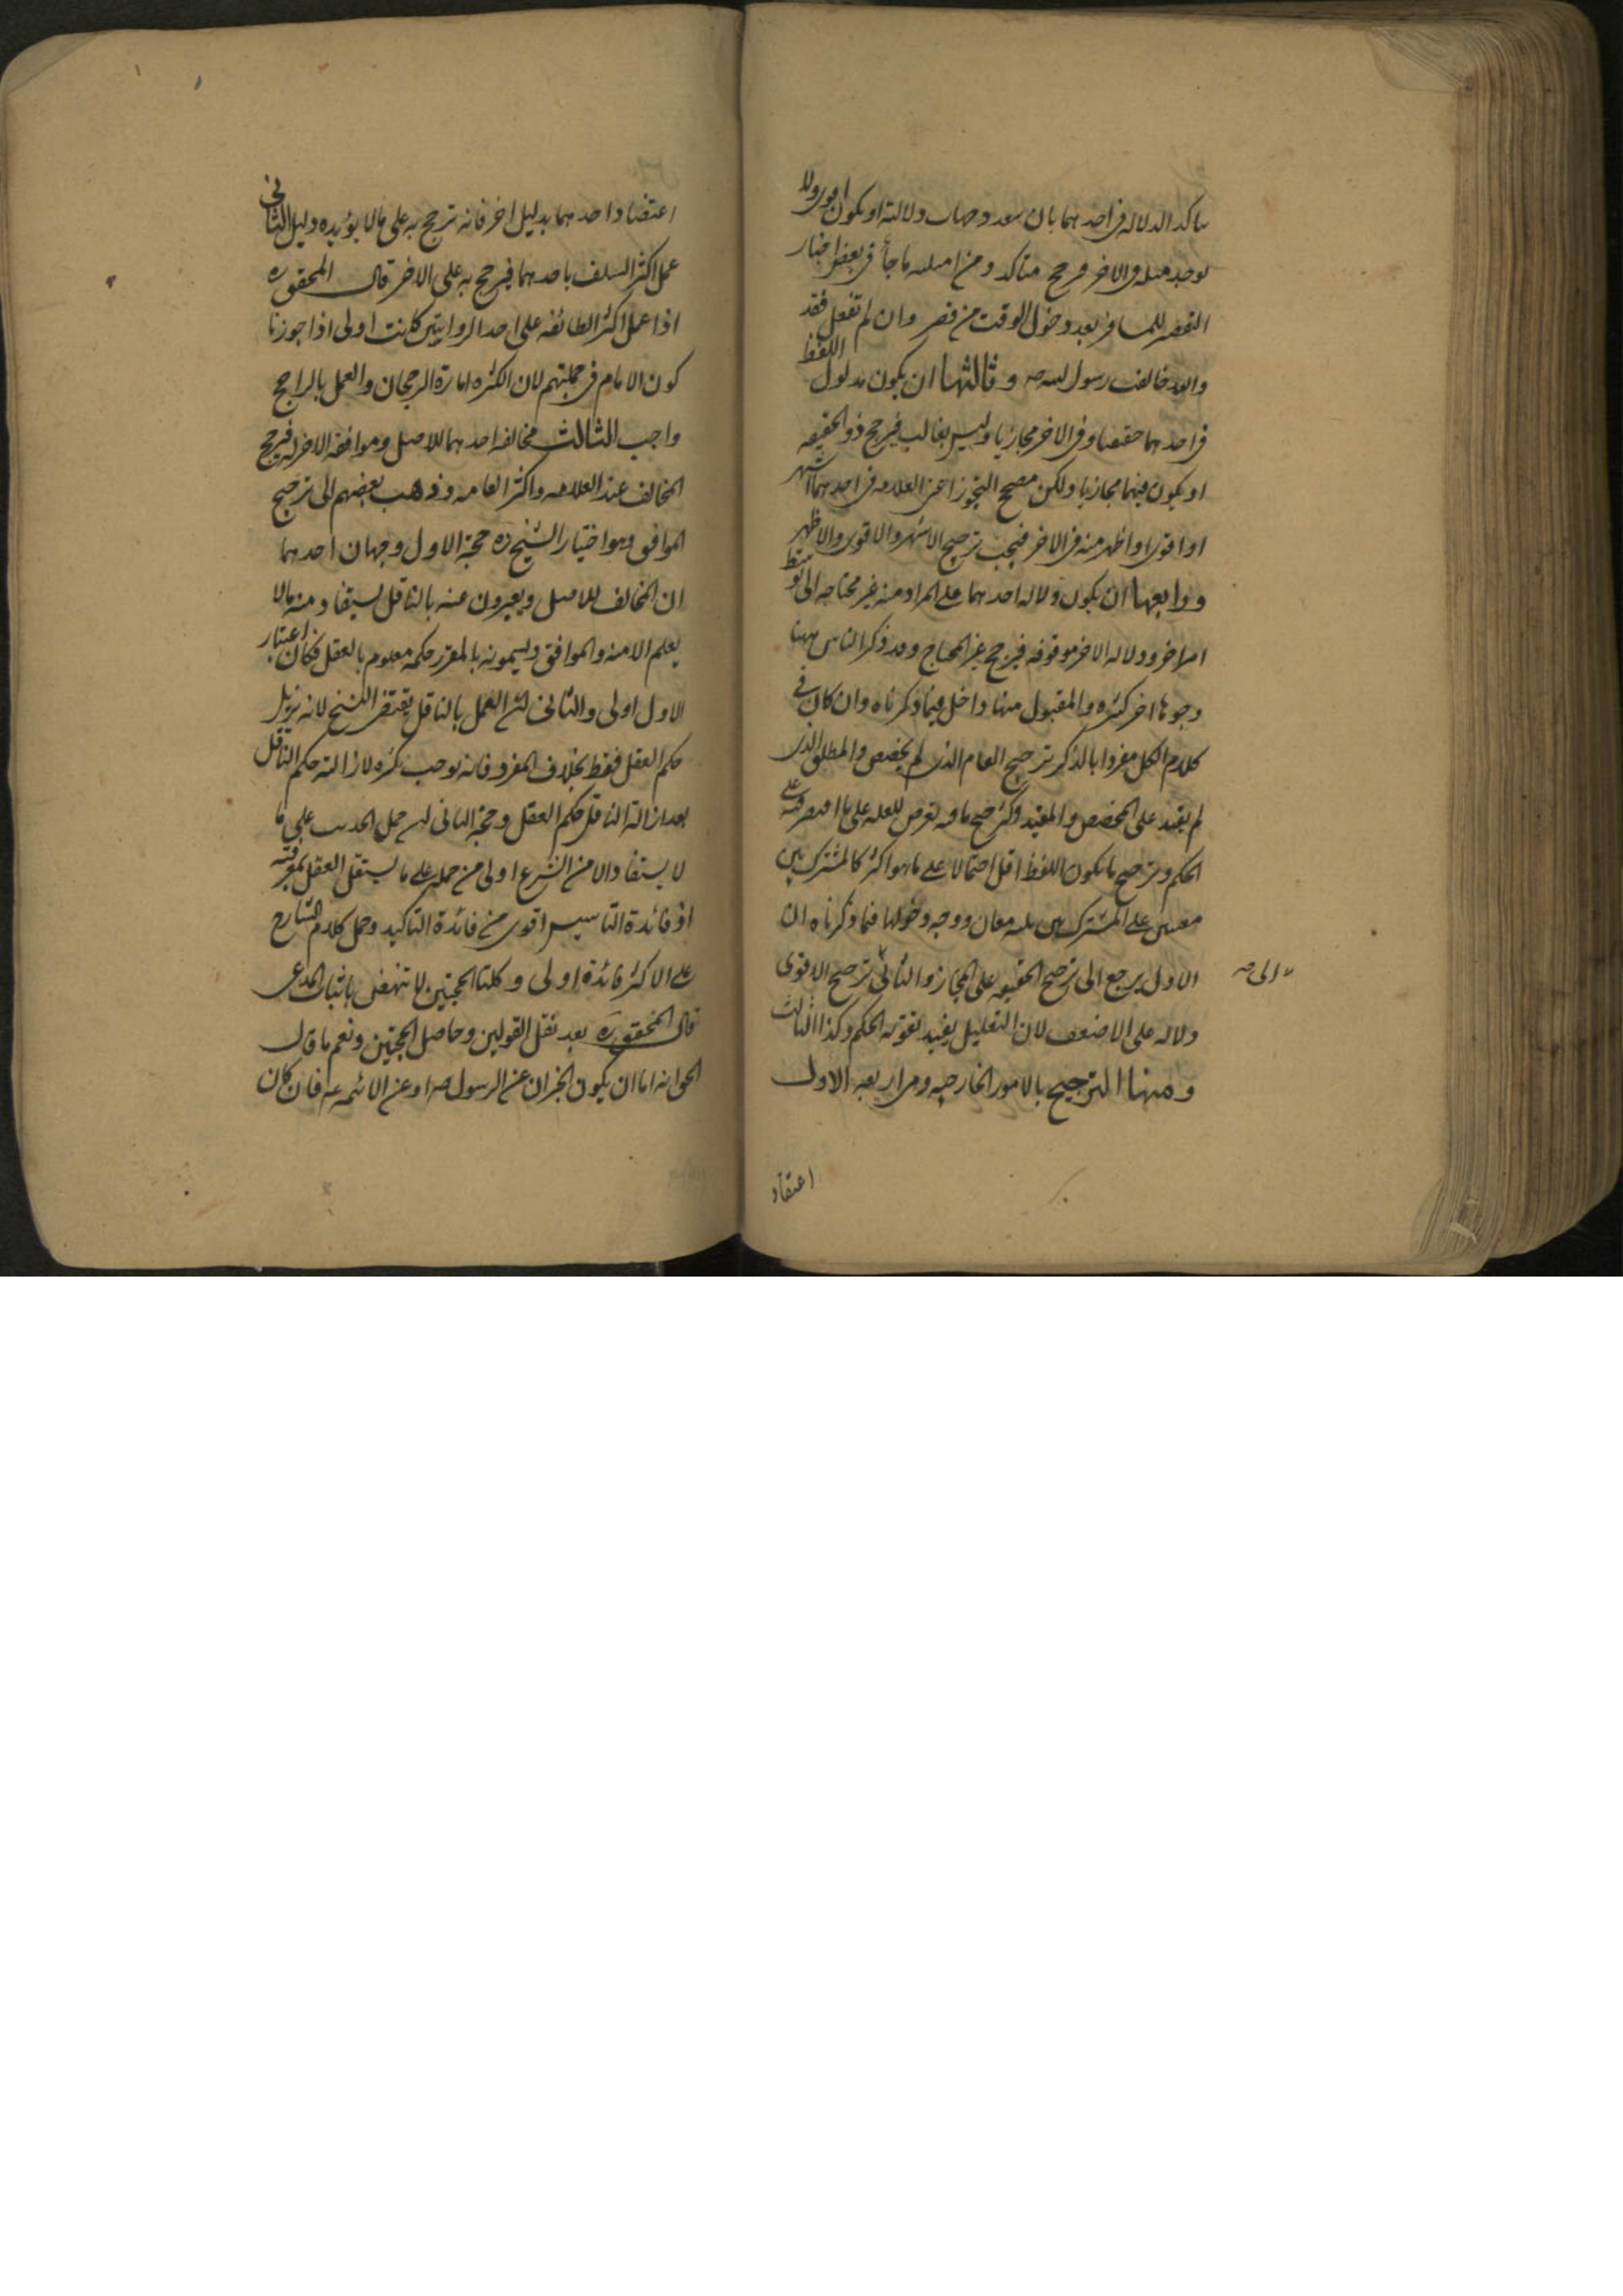 تاكد الدلاله فى احدهما بان يتعدد جهات دلالته او يكون اقوى ولا
يوجد مثله فى الاخر فيرجح متاكد ومن امثلته ما جاء فى بعض اخبار
التقصير للمسافر بعد دخول الوقت من قصر وان لم تفعل فقد
والله خالفت رسول الله ص وثالثها ان يكون مدلول اللفظ
فى احدهما حقيقيا وفى الاخر مجازيا وليس بغالب فيرجح ذو الحقيقه
او يكون فيهما مجازيا ولكن مصحح التجوز اعنى العلاقه فى احدهما اشهر
او اقوى او اظهر منه فى الاخر فيجب ترجيح الاشهر والاقوى والاظهر
ورابعها ان يكون دلاله احدهما على المراد منه غير محتاجه الى توسط
امر اخر ودلاله الاخر موقوفه فيرجح غير المحتاج وقد ذكر الناس ههنا
وجوها اخر كثيره والمقبول منها داخل فيما ذكرناه وان كان فى
كلام الكل مفردا بالذكر ترجيح العام الذى لم يخصص والمطلق الذى
لم يقيد على المخصص والمقيد وكترجيح ما فيه تعرض للعله على ما اقتصر فيه على
الحكم وترجيح ما يكون اللفظ اقل احتمالا على ما هو اكثر كالمشترك بين
معنيين على المشترك بين ثلثه معان ووجه دخولها فيما ذكرناه ان
الاول يرجع الى ترجيح الحقيقه على المجاز والثانى ترجيح الاقوى
الى ص
دلاله على الاضعف لان التعليل يفيد تقوته الحكم وكذا الثالث
ومنها الترجيح بالامور الخارجيه وهى اربعه الاول
اعتضاد
اعتضاد احدهما بدليل اخر فانه ترجح به على مالا يؤيده دليل الثانى
عمل اكثر السلف باحدهما فيرجح به على الاخر قال المحقق ره
اذا عمل اكثر الطائفه على احد الروايتين كانت اولى اذا جوزنا
كون الامام فى جملتهم لان الكثره امارة الرجحان والعمل بالراجح
واجب الثالث مخالفه احدهما للاصل وموافقه الاخر له فيرجح
المخالف عند العلامه واكثر العامه وذهب بعضهم الى ترجيح
الموافق وهو اختيار الشيخ ره حجة الاول وجهان احدهما
ان المخالف للاصل ويعبرون عنه بالناقل يستفاد منه مالا
يعلم الا منه والموافق ويسمونه بالمقرر حكمه معلوم بالعقل فكان اعتبار
الاول اولى والثانى ان العمل بالناقل يقتضى النسخ لانه يزيل
حكم العقل فقط بخلاف المقرر فانه يوجب تكثره لازالته حكم الناقل
بعد ازالة الناقل حكم العقل وحجة الثانى ان حمل الحديث على ما
لا يستفاد الا من الشرع اولى من حمله على ما يستقل العقل بمعرفته
اذ فائدة التاسيس اقوى من فائدة التاكيد وحمل كلام الشارع
على الاكثر فائدة اولى وكلتا الحجتين لا تنهض باثبات المدعى
قال المحقق ره بعد نقل القولين وحاصل الحجتين ونعم ما قال
الحق انه اما ان يكون الخبران عن الرسول ص او عن الائمه ع فان كان